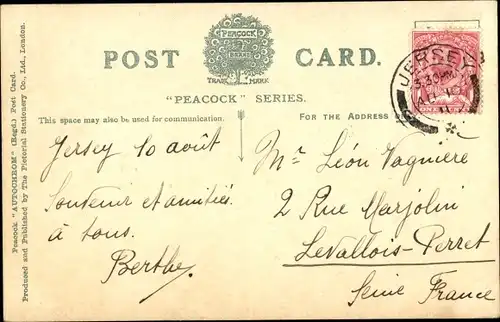 Peacock "AUTOCHROM" (Regd.) Post Card.
Produced and Published by The Pictorial Stationery Co., Ltd., London.
POST CARD.
PEACOCK
BRAND
TRADE MARK
"PEACOCK" SERIES.
This space may also be used for communication.
FOR THE ADDRESS
JERSEY
3.30PM
Jersey 10 août
Souvenir et amitiés
à tous.
Berthe
Mr Léon Vagnière
2 Rue Marjolin
Levallois-Perret
Seine France